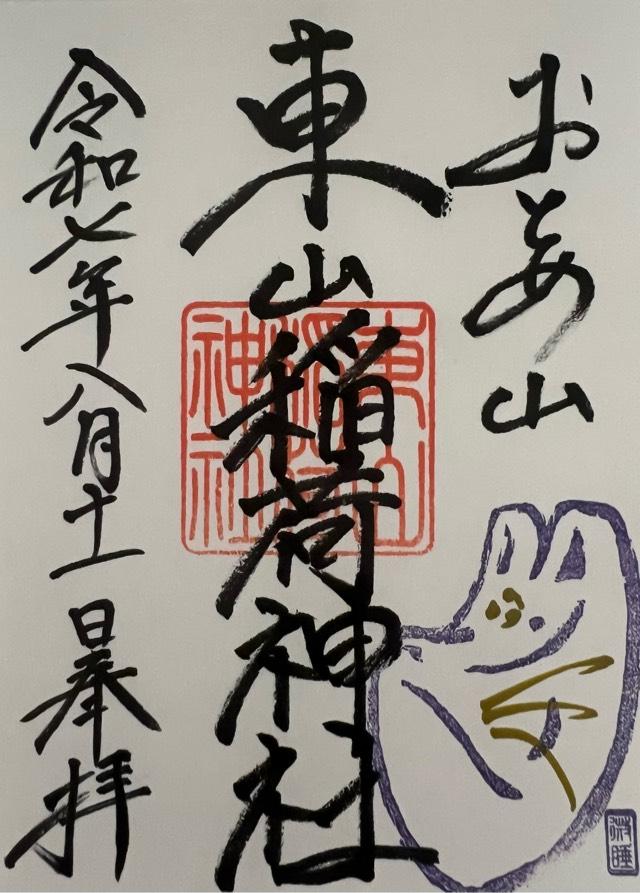 おとめ山
東山稲荷神社
令和七年八月十一日奉拝
東山
神社